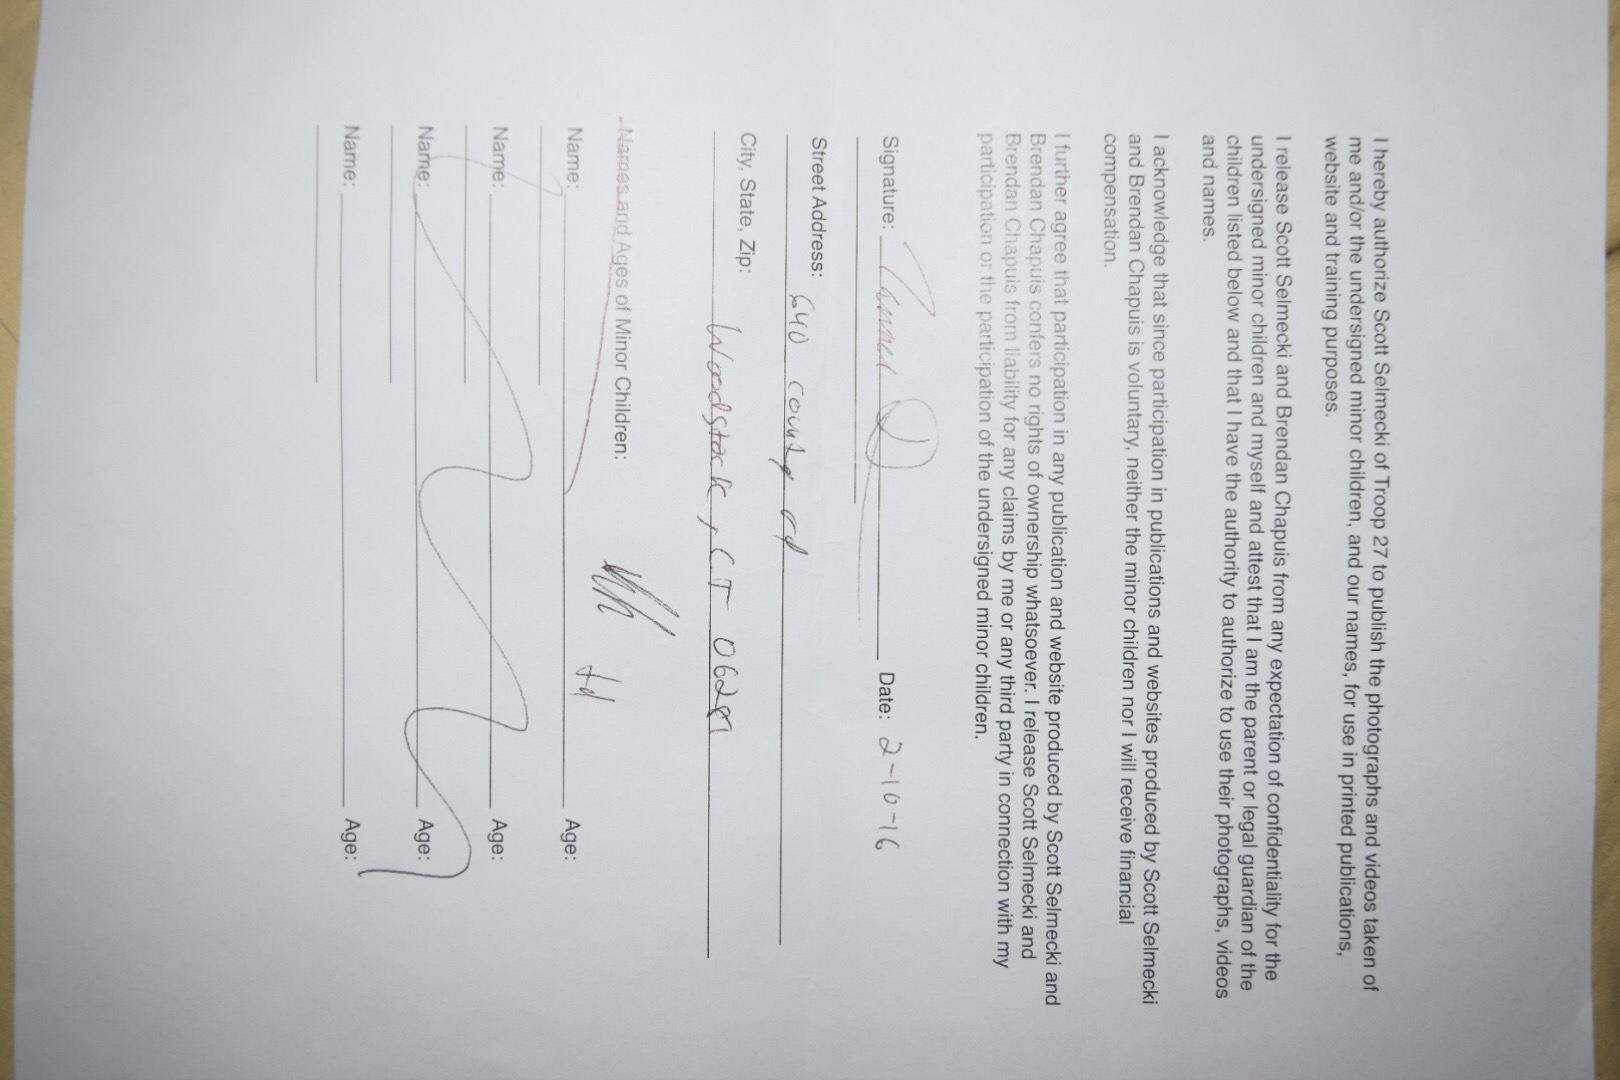 I hereby authorize Scott Selmecki of Troop 27 to publish the photographs and videos taken of
me and/or the undersigned minor children, and our names, for use in printed publications,
website and training purposes.
I release Scott Selmecki and Brendan Chapuis from any expectation of confidentiality for the
undersigned minor children and myself and attest that I am the parent or legal guardian of the
children listed below and that I have the authority to authorize to use their photographs, videos
and names.
I acknowledge that since participation in publications and websites produced by Scott Selmecki
and Brendan Chapuis is voluntary, neither the minor children nor I will receive financial
compensation.
I further agree that participation in any publication and website produced by Scott Selmecki and
Brendan Chapuis confers no rights of ownership whatsoever. I release Scott Selmecki and
Brendan Chapuis from liability for any claims by me or any third party in connection with my
participation or the participation of the undersigned minor children.
Signature: Tanner D Date: 2-10-16
Street Address:
640 county rd
City, State, Zip:
Woodstock, CT 06281
Names and Ages of Minor Children:
Name: Age:
Name: Age:
Name: Age:
Name: Age: